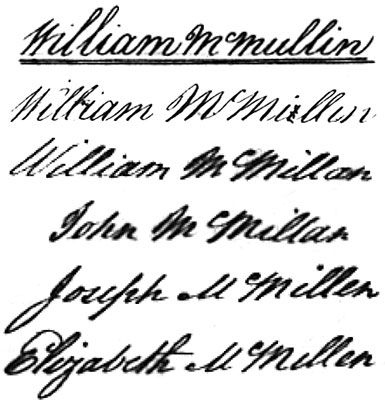 William McMullin
William McMillen
William McMillan
John McMillan
Joseph McMillen
Elizabeth McMillen